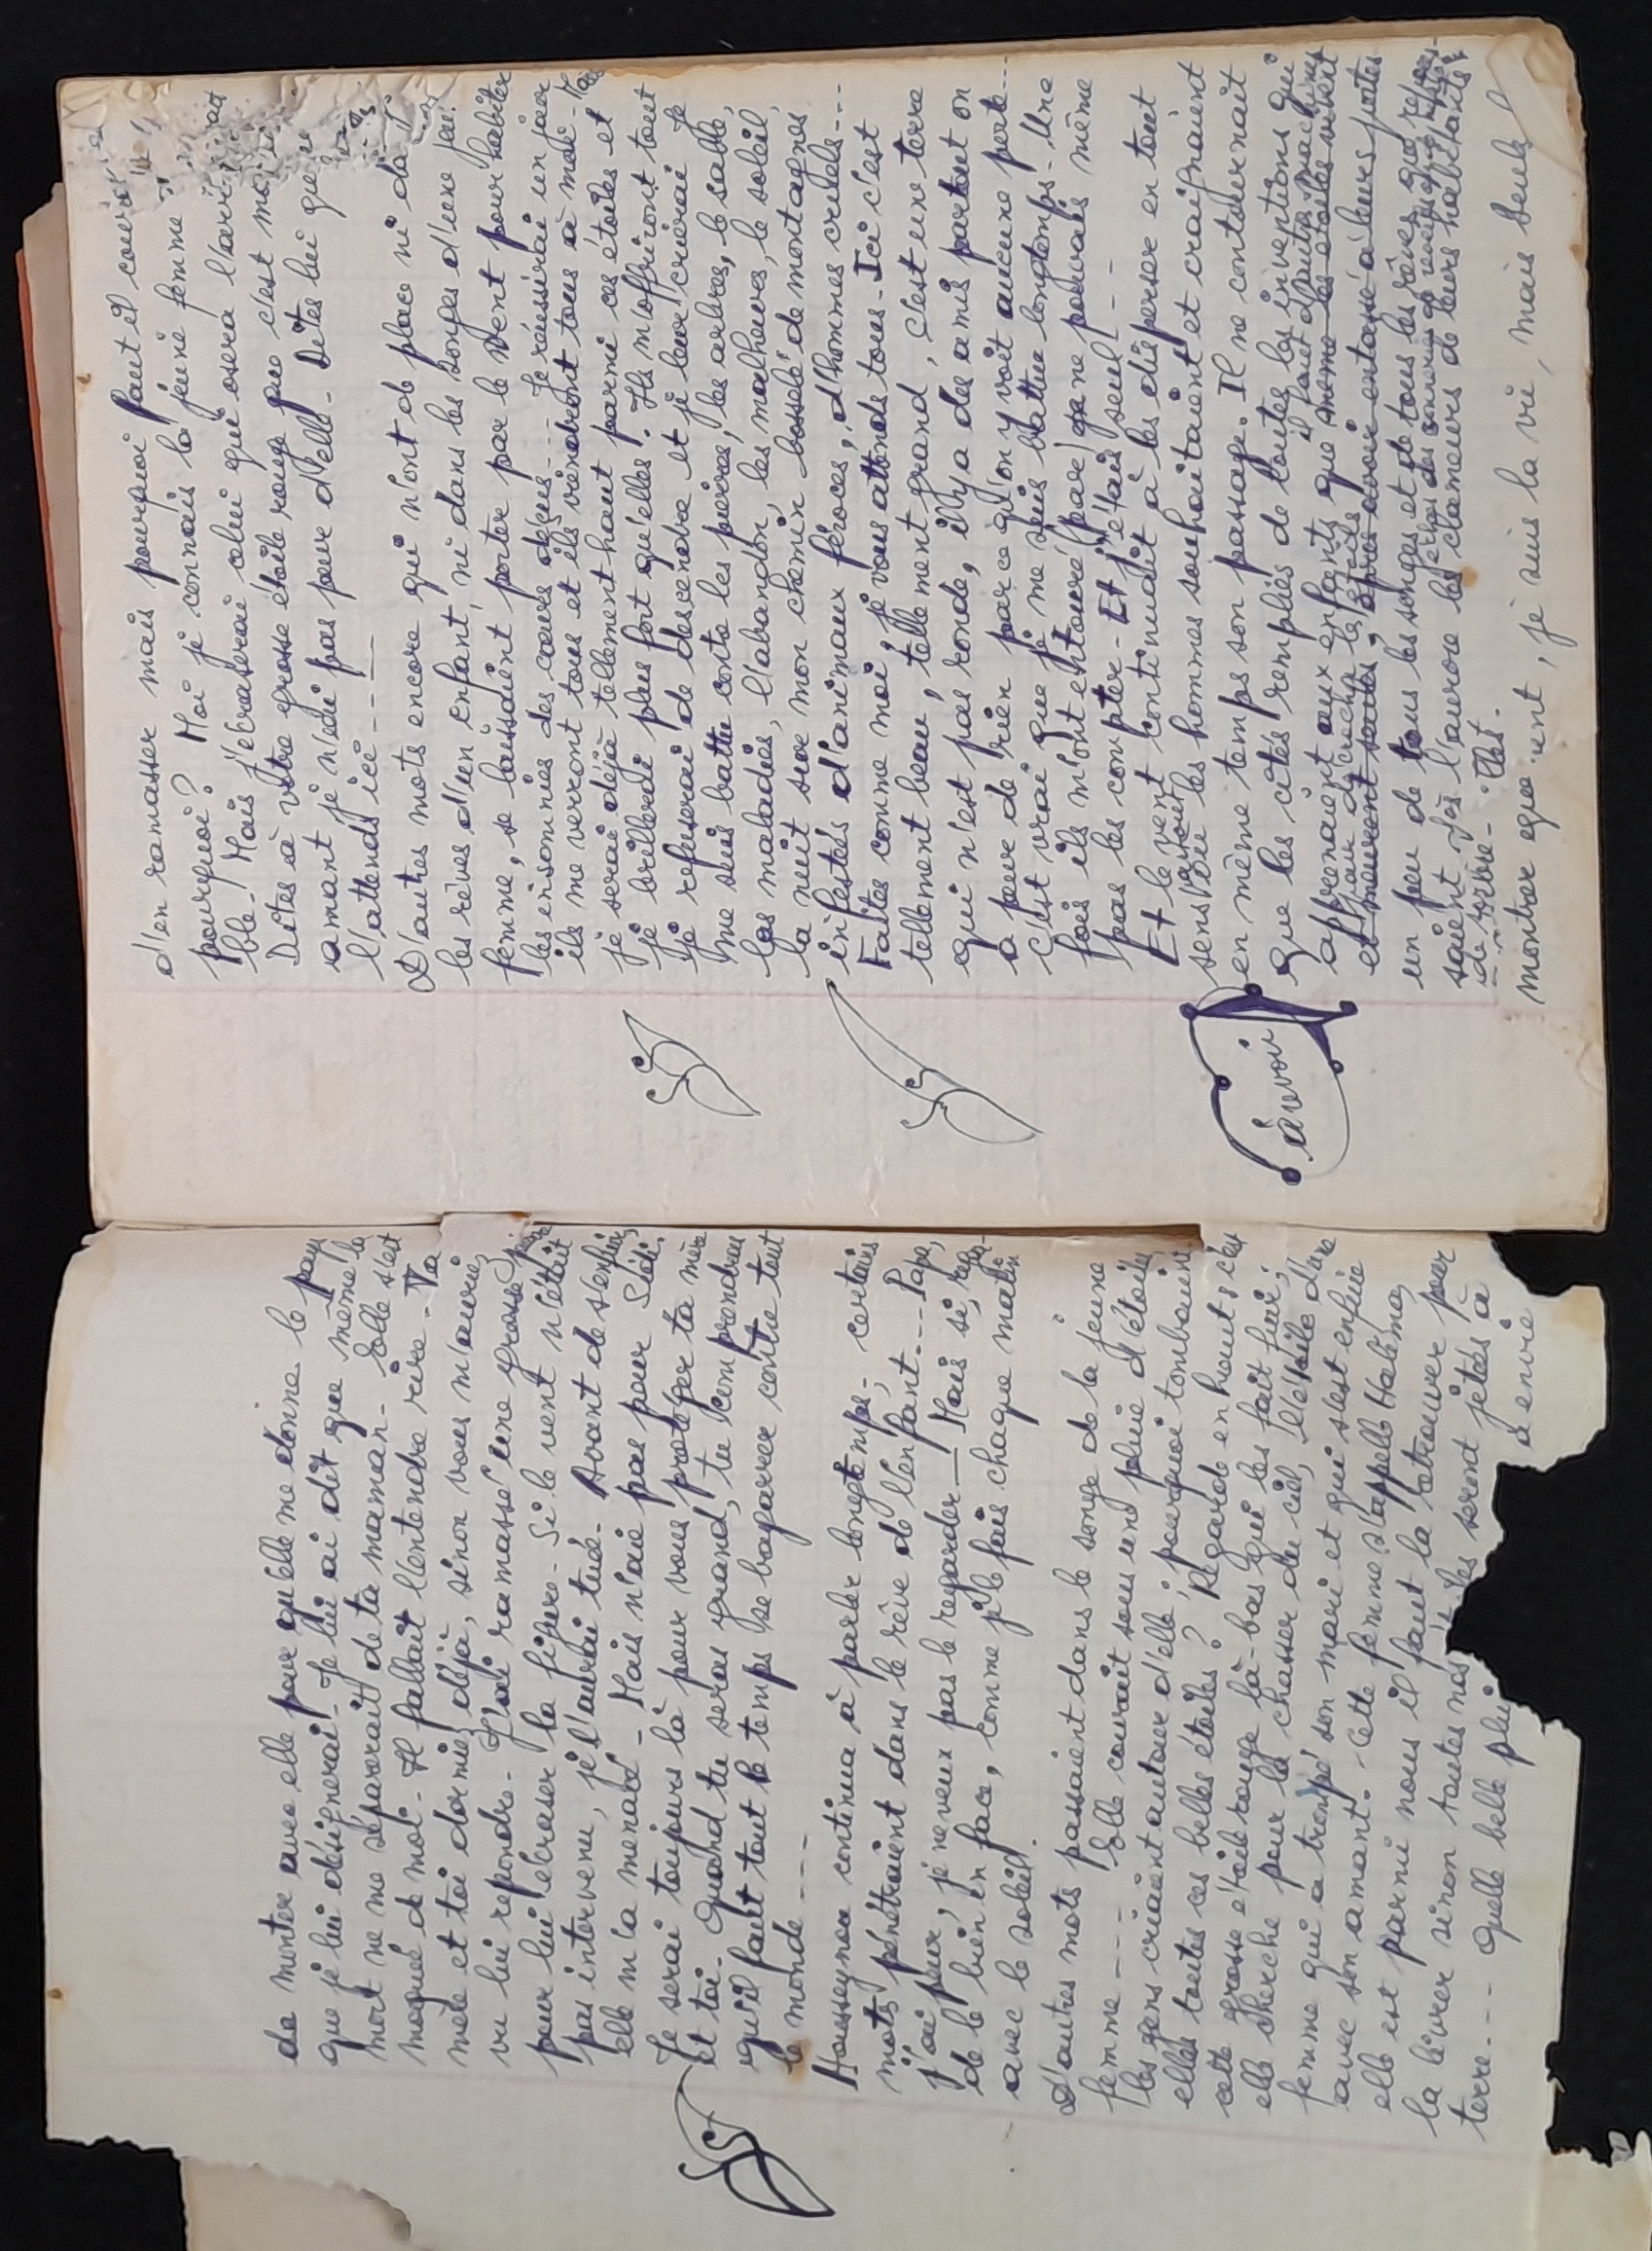 de monter avec elle pour qu'elle me donne le pays
que je lui désignerai - Je lui ai dit que même la
mort ne me séparerait de ta maman - Elle s'est
moqué de moi - Il fallait l'entendre rire - Ta
mère et toi dormiez déjà, sinon vous m'auriez
vu lui repondre - J'ai ramassé une grosse pierre
pour lui écraser la figure - Si le vent n'était
pas intervenu, je l'aurai tué - Avant de s'enfuir,
elle m'a menacé - Mais n'aie pas peur Sidi.
Je serai toujours là pour vous protéger ta mère
et toi - Quand tu seras grand, tu comprendras
qu'il faut tout le temps se bagarrer contre tout
le monde ----
Housseynou continua à parler longtemps - certains
mots pénétraient dans le rêve de l'enfant --- Papa,
j'ai peur, je ne veux pas le regarder — Mais si, regar-
de le bien en face, comme je le fais chaque matin
avec le soleil.
D'autres mots passaient dans le songe de la jeune
femme ---- Elle courait sous une pluie d'étoiles,
les gens criaient autour d'elle ; pourquoi tombaient
elles toutes ces belles étoiles ? Regarde en haut, c'est
cette grosse étoile rouge là-bas qui les fait fuir ;
elle cherche pour la chasser du ciel, l'étoile d'une
femme qui a trompé son mari et qui s'est enfuie
avec son amant. - Cette femme s'appelle Halima,
elle est parmi nous il faut la retrouver pour
la livrer sinon toutes nos les seront jetées à
terre --- Quelle belle plui à envie
d'en ramasser mais pourquoi faut il courir
pourquoi ? Moi je connais la jeune femme
ble - Mais j'écraserai celui qui osera
Dites à votre grosse étoile rouge que c'est moi
amant je n'ai pas peur d'elle - Dites lui que
l'attends ici ----
D'autres mots encore qui n'ont de place ni da
les rêves d'un enfant, ni dans les songes d'une jeu
femme, se laissaient porter par le vent pour habiter
les insomnies des cœurs déçus --- Je réussirai un jour
ils me verront tous et ils viendront tous à moi -
je serai déjà tellement haut parmi ces étoiles et
je brillerai plus fort qu'elles. Ils m'offriront tout
je refuserai de descendre et je leur crierai je
me suis battu contre les pierres, les arbres, le sable,
les maladies, l'abandon, les malheurs, le soleil,
la nuit sur mon chemin bosselé de montagnes
infestés d'animaux féroces, d'hommes cruels ---
Faites comme moi, je vous attends tous - Ici c'est
tellement beau, tellement grand, c'est une terre
qui n'est pas ronde, il y a des amis partout on
a peur de rien parce qu'on y voit aucune porte ---
c'est vrai que je me suis battu longtemps - Une
fois ils m'ont entouré parce que ne pouvais même
pas les compter - Et j'étais seul ! - -
Et le vent continuait à les disperser en tout
sens partout où les hommes souhaitaient et craignaient
en même temps son passage. Il ne contournait
que les cités remplies de toutes les inventions qui
apprenaient aux enfants que même les étoiles
il faut d'autres machines
pour décrocher les étoiles
un peu de tous les songes et de tous les rêves que refu-
saient dès l'aurore les clameurs de leurs habitants
montrer que uni, je suis la vie, mais seul !
à voir